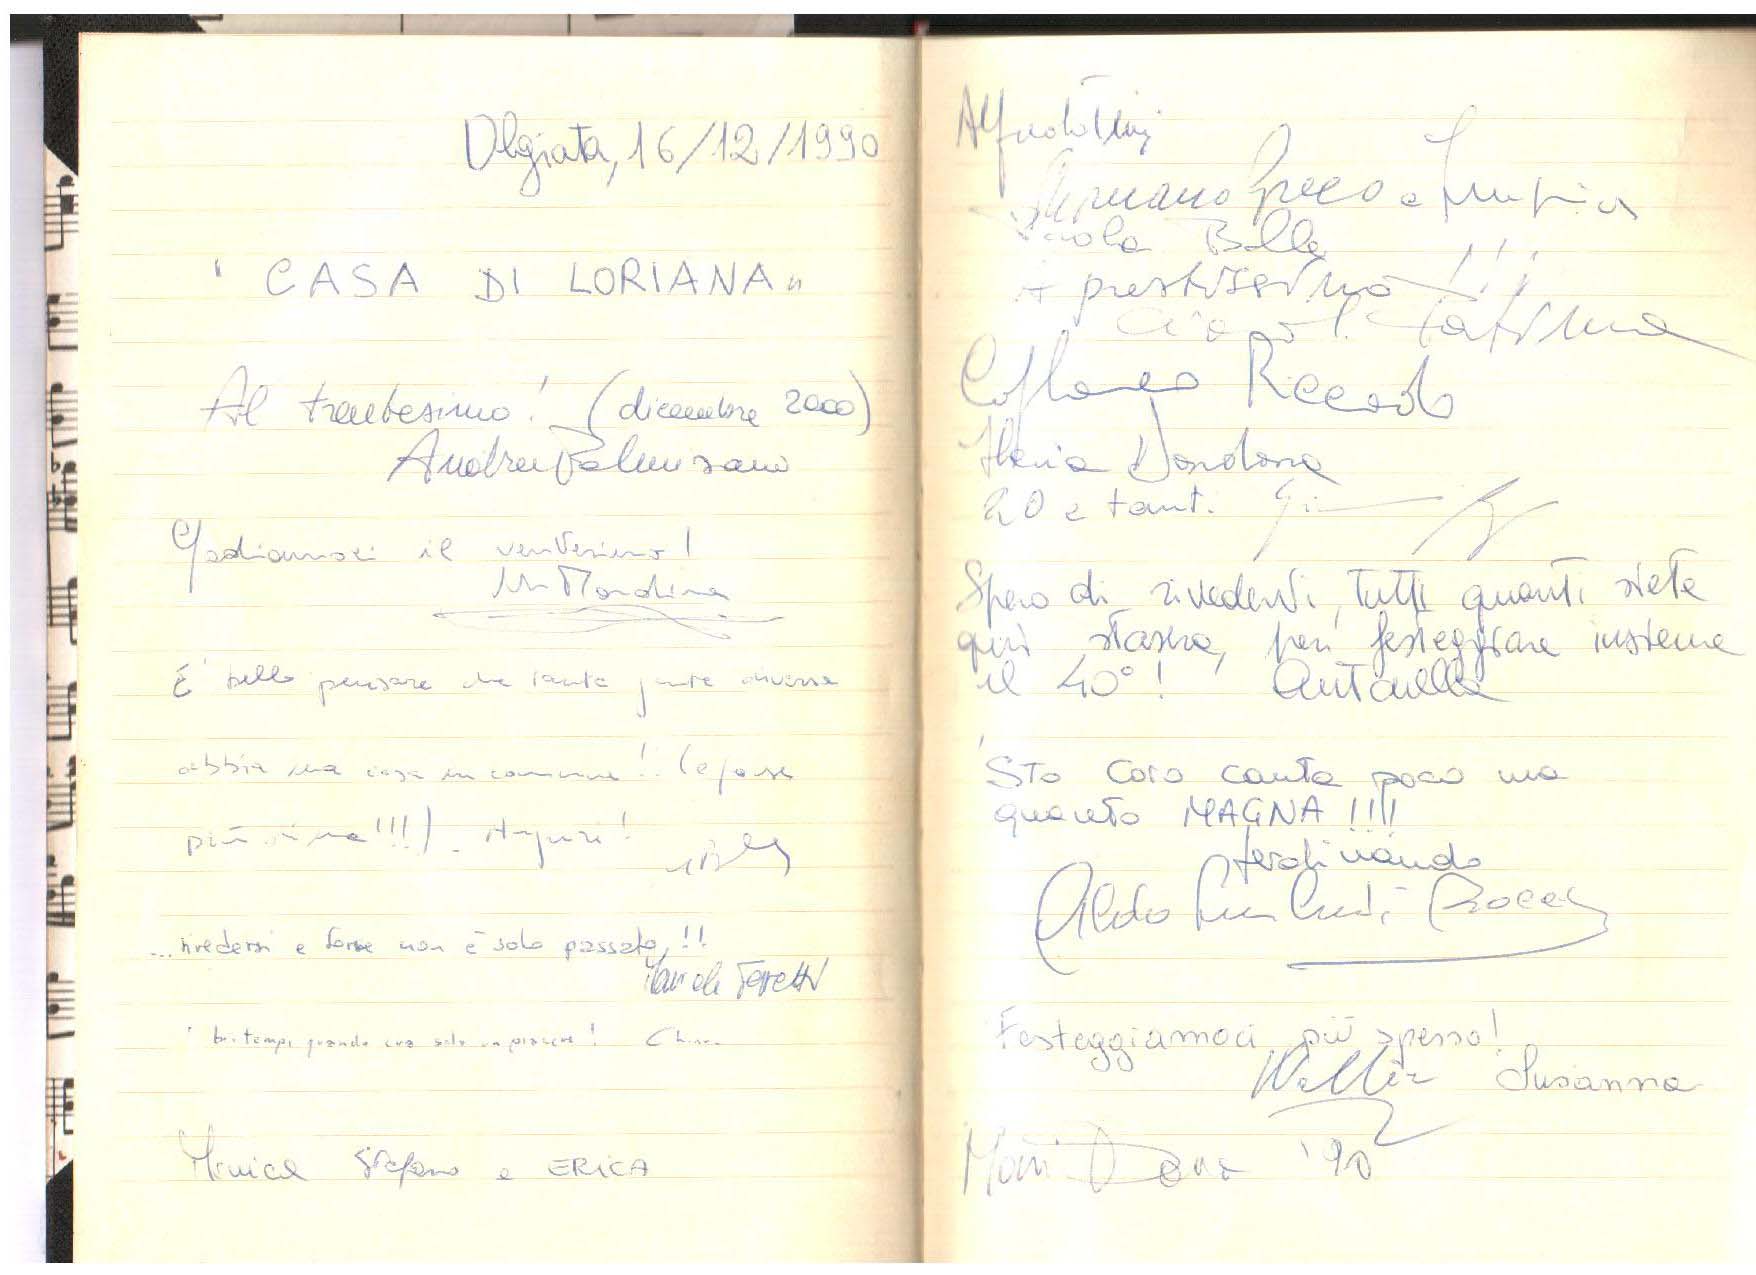 Olgiata, 16/12/1990
" CASA DI LORIANA "
Al trentesimo! (dicembre 2000)
Andrea Palmisano
Godiamoci il ventesimo!
M. Mondina
E' bello pensare che tanta gente diversa
abbia una cosa in comune!! (e forse
più di una!!!). Auguri!
... rivedersi e forse non è solo passato,!!
bei tempi quando era solo un piacere!
Monica Stefano e ERICA
Alfredo
Germano Greco e
Paola Bolla
A prestissimo!!!
Ciao! Fatima
Riccardo
Ilaria Dondona
20 e tanti
Spero di rivedervi, tutti quanti siete
qui stasera, per festeggiare insieme
il 40°! Antonella
'Sto coro canta poco ma
quanto MAGNA!!!!
Ferdinando
Aldo
Festeggiamoci più spesso!
Walter Susanna
'90